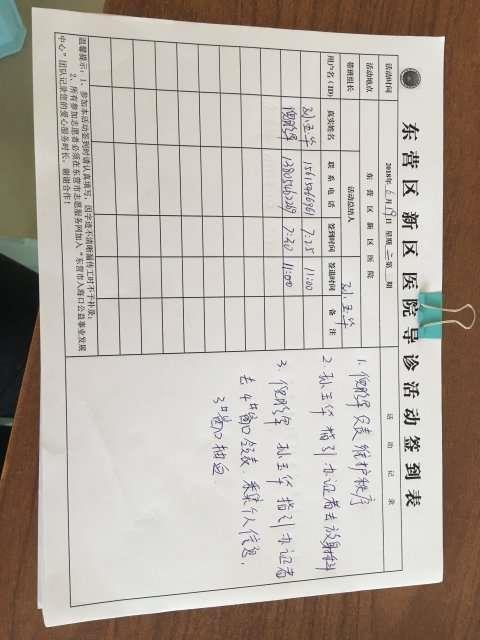 东营区新区医院导诊活动签到表
活动时间 2018年6月19日 星期二 第 期
活动地点 东营区新区医院
带班组长 活动总结人 孙玉华
用户名(ID) 真实姓名 联系电话 签到时间 签退时间 备注
孙玉华 7:25 11:00
7:30 11:00
温馨提示:1、参加本活动签到时请认真填写,因字迹不清晰漏传工时不予补录;
2、所有参加志愿者必须在东营市志愿服务网加入“东营市入海口公益事业发展
中心”团队记录您的爱心服务时长,谢谢合作!
活动记录
1. 负责维护秩序
2. 孙玉华 指引办证者去放射科
3. 孙玉华 指引办证者
去4号窗口领表 采集个人信息,
3号窗口抽血